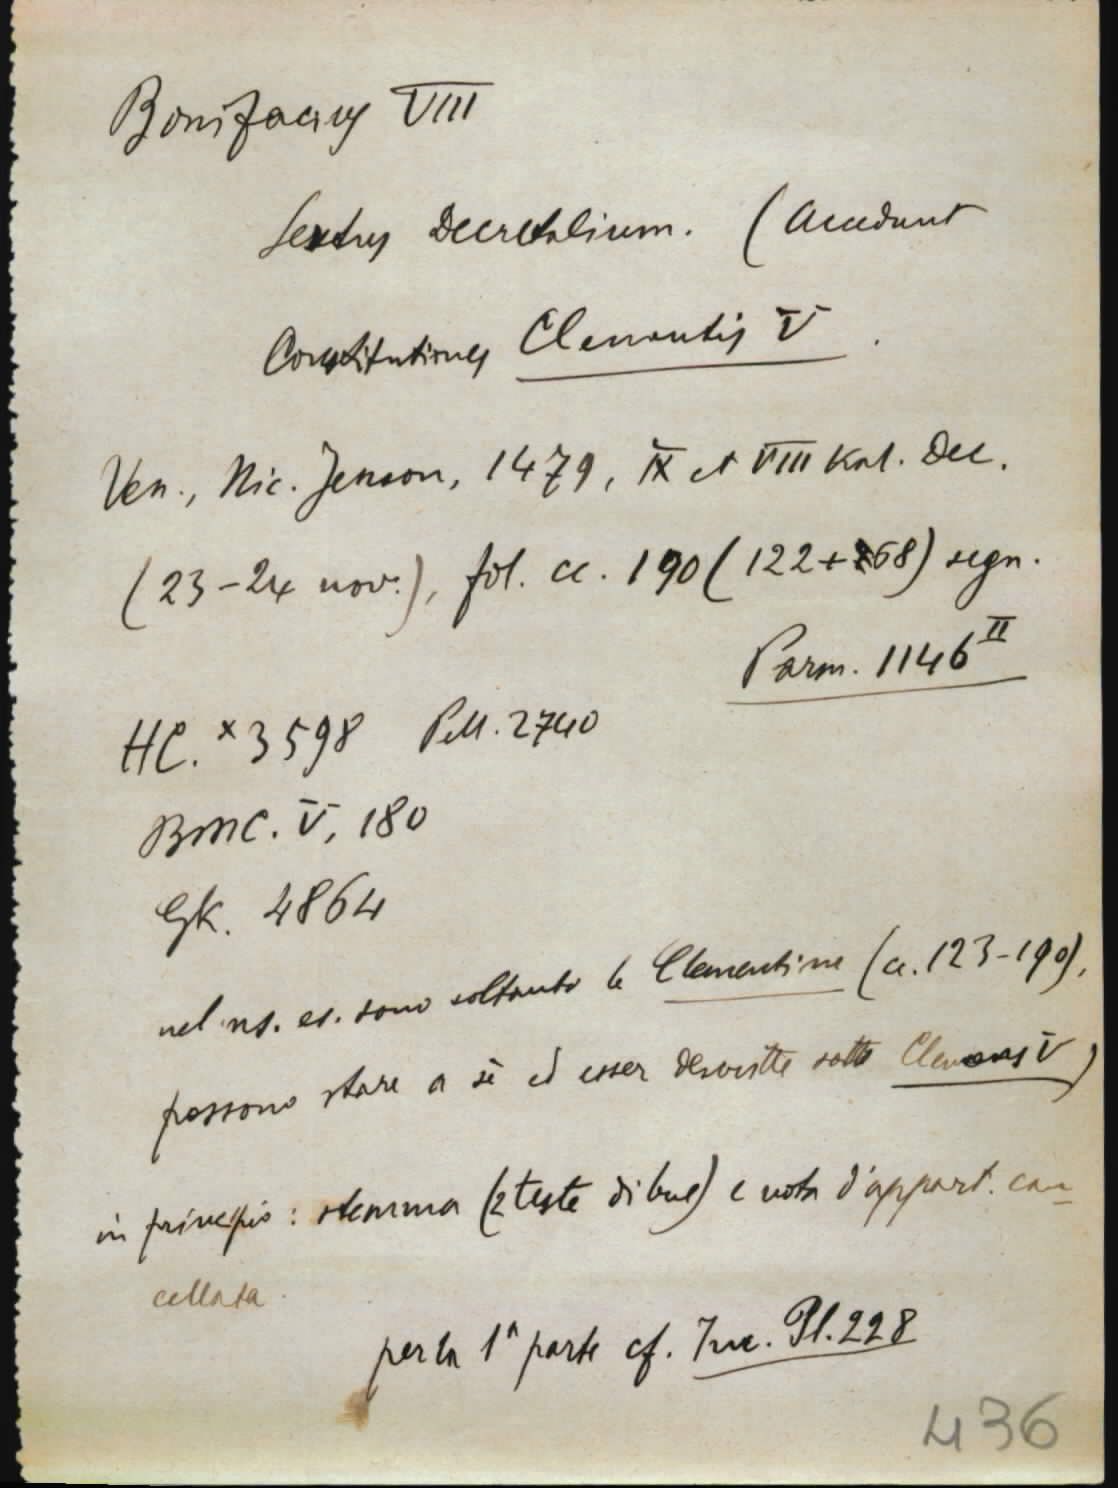 Bonifacius VIII
Sextus Decretalium. (Accedunt
Constitutiones Clementis V.
Ven., Nic. Jenson, 1479, IX et VIII Kal. Dec.
(23-24 nov.), fol. cc. 190 (122+68) segn.
Parm. 1146 II
HC. *3598 Pell. 2740
BMC. V, 180
GK. 4864
nel ns. es. sono soltanto le Clementine (cc. 123-190),
possono stare a sè ed esser descritte sotto Clemens V)
in principio: stemma (2 teste di bue) e nota d'appart. can-
cellata.
per la 1ª parte cf. Inc. Pl. 228
436